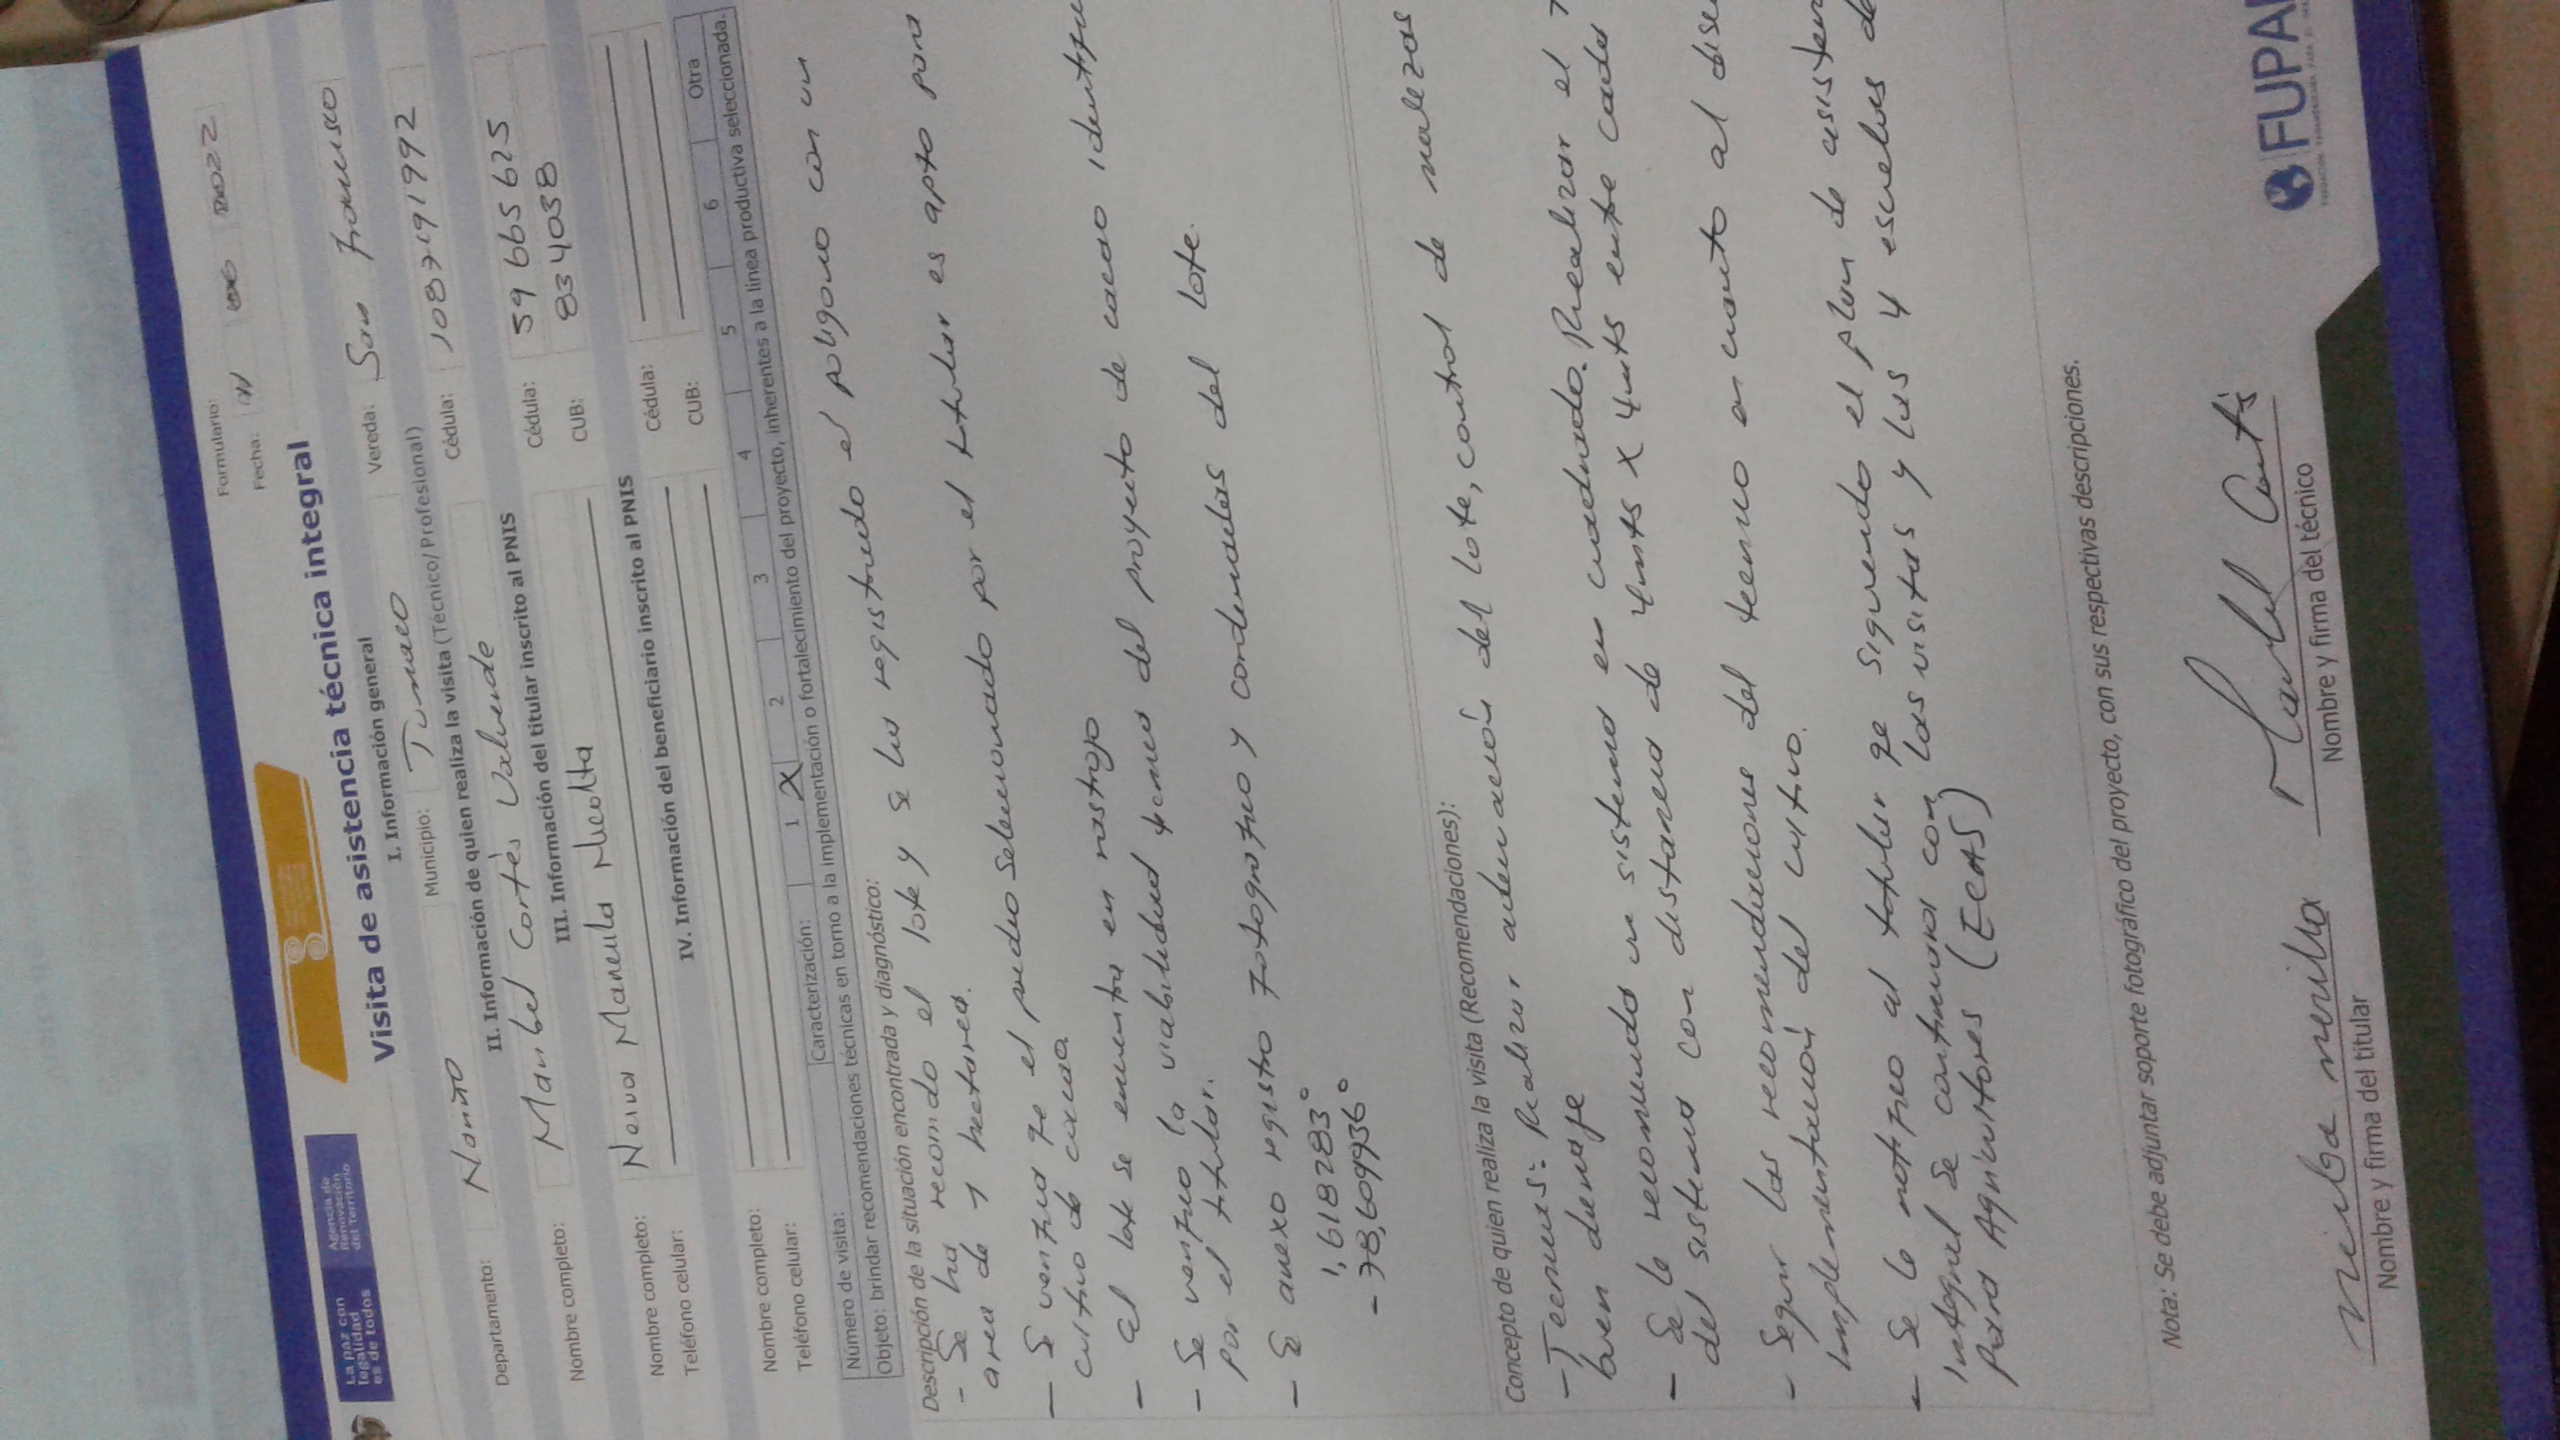 La paz con
legalidad
es de todos
Agencia de
Renovación
del Territorio
Formulario:
Fecha: 06 2022
Visita de asistencia técnica integral
I. Información general
Departamento: Nariño Municipio: Tumaco Vereda: San Francisco
II. Información de quien realiza la visita (Técnico/Profesional)
Nombre completo: Maribel Cortés Valverde Cédula: 1087191992
III. Información del titular inscrito al PNIS
Nombre completo: Neiva Marenila Nicolta Cédula: 59 665 625
Teléfono celular: CUB: 834038
IV. Información del beneficiario inscrito al PNIS
Nombre completo: Cédula:
Teléfono celular: CUB:
Número de visita: Caracterización: 1 X 2 3 4 5 6 Otra
Objeto: brindar recomendaciones técnicas en torno a la implementación o fortalecimiento del proyecto, inherentes a la línea productiva seleccionada.
Descripción de la situación encontrada y diagnóstico:
- Se ha recorrido el lote y se ha registrado el polígono con un
area de 1 hectarea.
- Se verifica qe el predio seleccionado por el titular es apto para
cultivo de cacao.
- el lote se encuentra en rastrojo
- Se verifico la viabilidad tecnica del proyecto de cacao identific
por el titular.
- Se anexo registro Fotografico y cordenadas del lote.
1,618283°
- 78,6099936°
Concepto de quien realiza la visita (Recomendaciones):
- Tecnicas: Realizar adecuación del lote, control de malezas
buen drenaje
- Se le recomienda un sistema en cuadrado. Realizar el
del sistema con distancia de 4mts x 4mts entre cada
- Seguir las recomendaciones del tecnico en cuanto al dise
implementación del cultivo.
- Se le notifico al titular qe siguiendo el plan de asisten
Integral se continuará con las visitas y las 4 escuelas de
para Agricultores (ECAS)
Nota: Se debe adjuntar soporte fotográfico del proyecto, con sus respectivas descripciones.
Maribel Cortés
Nombre y firma del titular Nombre y firma del técnico
FUPA